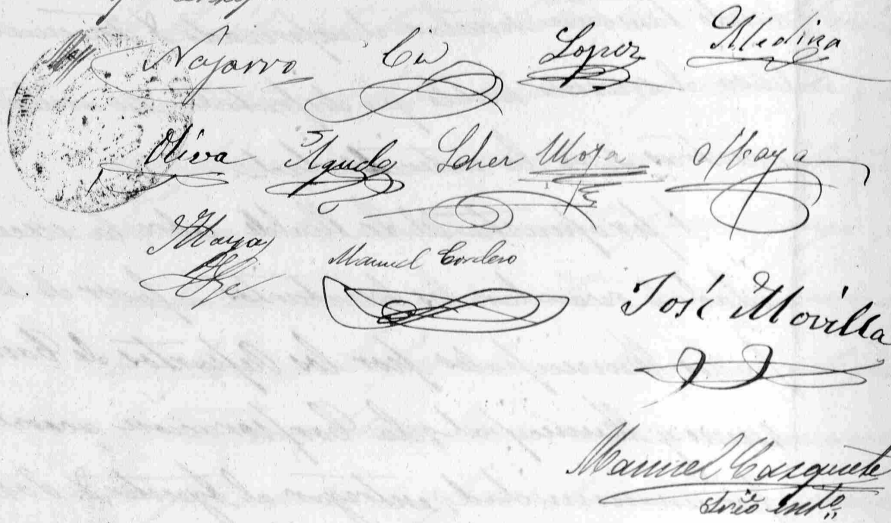 Navarro Cid Lopez Medina
Oliva Agudo Moya Maya
Maya
Manuel Cordero
José Movilla
Manuel Casquete
Srio intº